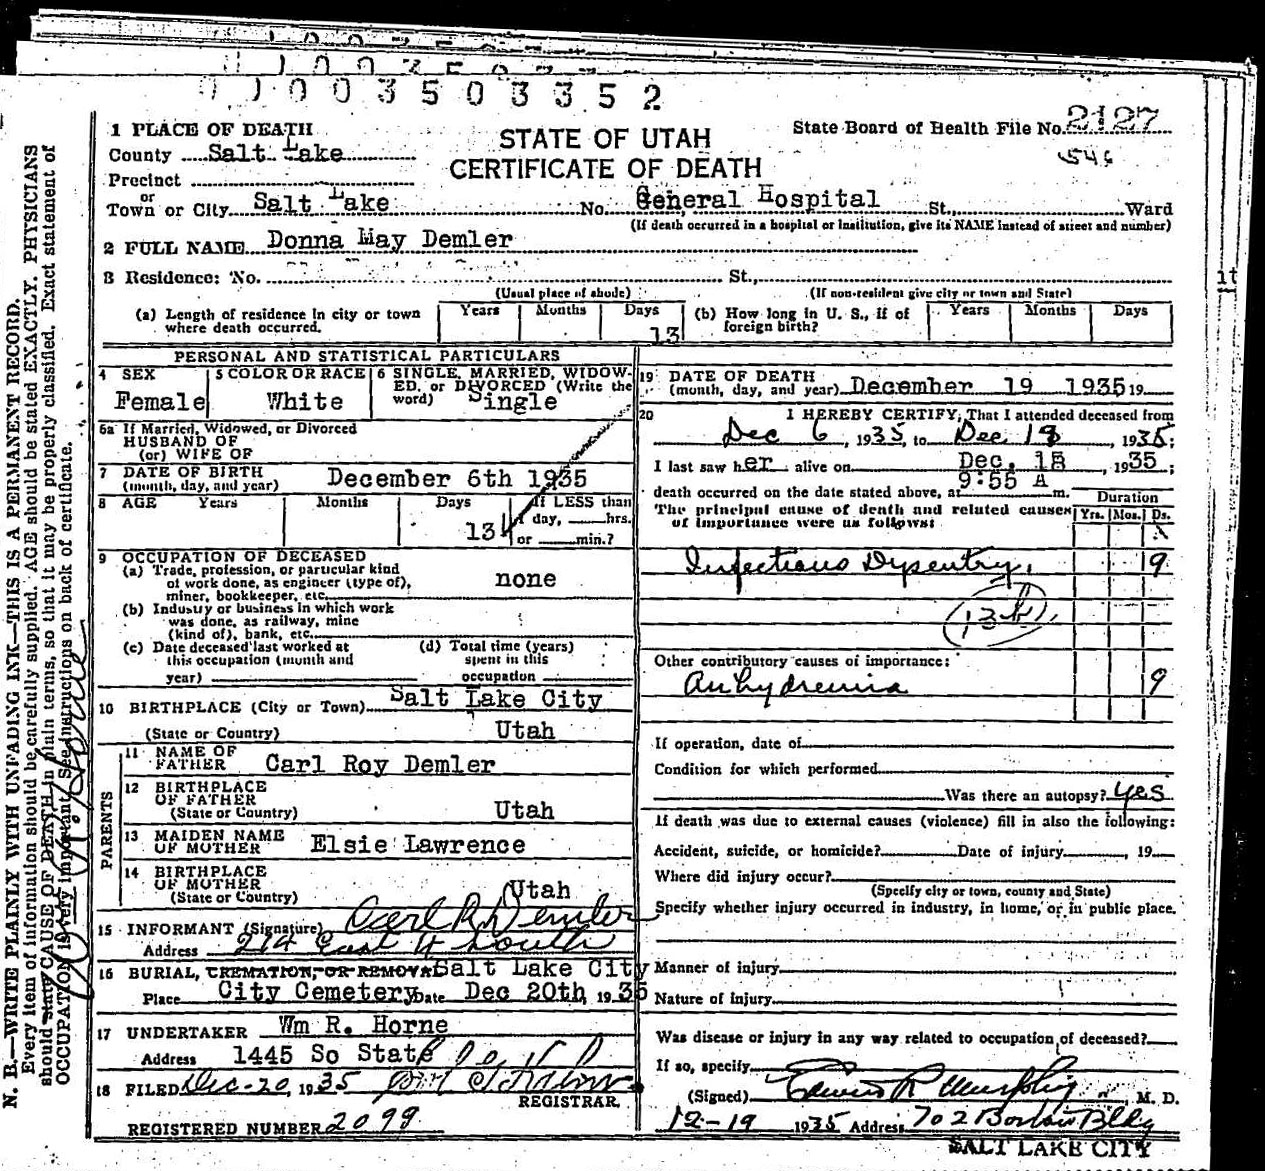 0 1 0 0 3 5 0 3 3 5 2
1 PLACE OF DEATH
County Salt Lake
STATE OF UTAH
CERTIFICATE OF DEATH
State Board of Health File No. 2127
546
Precinct
or
Town or City Salt Lake No. General Hospital St., Ward
(If death occurred in a hospital or institution, give its NAME instead of street and number)
2 FULL NAME Donna May Demler
3 Residence: No. St.,
(Usual place of abode) (If non-resident give city or town and State)
(a) Length of residence in city or town where death occurred. Years Months Days 13
(b) How long in U. S., if of foreign birth? Years Months Days
PERSONAL AND STATISTICAL PARTICULARS
4 SEX Female
5 COLOR OR RACE White
6 SINGLE, MARRIED, WIDOWED, or DIVORCED (Write the word) Single
6a If Married, Widowed, or Divorced
HUSBAND OF
(or) WIFE OF
7 DATE OF BIRTH
(month, day, and year) December 6th 1935
8 AGE Years Months Days 13
If LESS than
1 day, hrs.
or min.?
9 OCCUPATION OF DECEASED
(a) Trade, profession, or particular kind
of work done, as engineer (type of),
miner, bookkeeper, etc. none
(b) Industry or business in which work
was done, as railway, mine
(kind of), bank, etc.
(c) Date deceased last worked at
this occupation (month and
year)
(d) Total time (years)
spent in this
occupation
10 BIRTHPLACE (City or Town) Salt Lake City
(State or Country) Utah
PARENTS
11 NAME OF FATHER Carl Roy Demler
12 BIRTHPLACE
OF FATHER
(State or Country) Utah
13 MAIDEN NAME
OF MOTHER Elsie Lawrence
14 BIRTHPLACE
OF MOTHER
(State or Country) Utah
15 INFORMANT (Signature) Carl R Demler
Address 214 East 4 South
16 BURIAL, CREMATION, OR REMOVAL Salt Lake City
Place City Cemetery Date Dec 20th 1935
17 UNDERTAKER Wm R. Horne
Address 1445 So State
18 FILED Dec-20, 1935
REGISTRAR
REGISTERED NUMBER 2099
19 DATE OF DEATH
(month, day, and year) December 19 1935 19
20 I HEREBY CERTIFY, That I attended deceased from
Dec 6, 1935, to Dec 18, 1935;
I last saw her alive on Dec. 18, 1935;
death occurred on the date stated above, at 9:55 A m.
The principal cause of death and related causes
of importance were as follows:
Duration
Yrs. Mos. Ds.
Infectious Dysentry. 9
Other contributory causes of importance:
Anhydremia 9
If operation, date of
Condition for which performed
Was there an autopsy? yes
If death was due to external causes (violence) fill in also the following:
Accident, suicide, or homicide? Date of injury , 19
Where did injury occur?
(Specify city or town, county and State)
Specify whether injury occurred in industry, in home, or in public place.
Manner of injury
Nature of injury
Was disease or injury in any way related to occupation of deceased?
If so, specify
(Signed) Edwin R Murphy, M. D.
12-19 1935 Address 702 Boston Bldg
SALT LAKE CITY
N. B.—WRITE PLAINLY WITH UNFADING INK—THIS IS A PERMANENT RECORD.
Every item of information should be carefully supplied. AGE should be stated EXACTLY. PHYSICIANS
should state CAUSE OF DEATH in plain terms, so that it may be properly classified. Exact statement of
OCCUPATION is very important. See instructions on back of certificate.